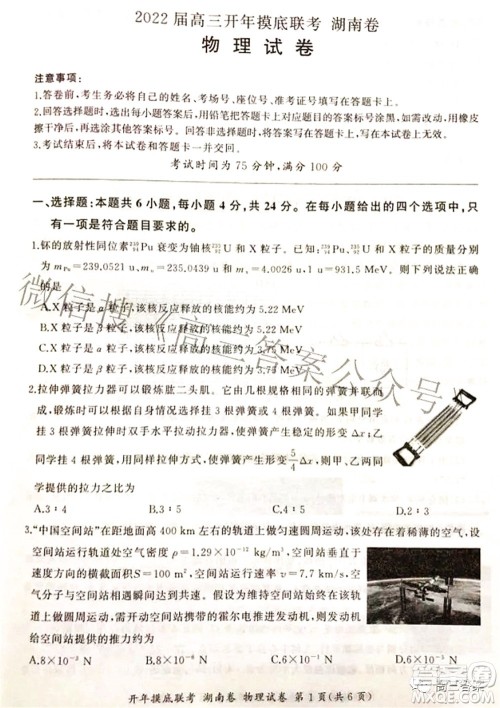 2022 届高三开年摸底联考 湖南卷
物 理 试 卷
注意事项：
1.答卷前，考生务必将自己的姓名、考场号、座位号、准考证号填写在答题卡上。
2.回答选择题时，选出每小题答案后，用铅笔把答题卡上对应题目的答案标号涂黑。如需改动，用橡皮
擦干净后，再选涂其他答案标号。回答非选择题时，将答案写在答题卡上，写在本试卷上无效。
3.考试结束后，将本试卷和答题卡一并交回。
考试时间为 75 分钟，满分 100 分
一、选择题：本题共 6 小题，每小题 4 分，共 24 分。在每小题给出的四个选项中，只
有一项是符合题目要求的。
1.钚的放射性同位素 ²³⁹₉₄Pu 衰变为铀核 ²³⁵₉₂U 和 X 粒子，已知
m_Pu＝239.0521 u、m_U＝235.0439 u 和 m_X＝4.0026 u，1 u＝931.5 MeV。则下列说法正确的是
A.X 粒子是 α 粒子，该核反应释放的核能约为 5.22 MeV
B.X 粒子是 β 粒子，该核反应释放的核能约为 5.22 MeV
C.X 粒子是 α 粒子，该核反应释放的核能约为 3.75 MeV
D.X 粒子是 β 粒子，该核反应释放的核能约为 3.75 MeV
2.拉伸弹簧拉力器可以锻炼肱二头肌。它由几根规格相同的弹簧并联而
成，锻炼时可以根据自身情况选择挂不同根数的弹簧。如果甲同学
挂 3 根弹簧拉伸时双手水平拉动拉力器，使弹簧产生稳定的形变 Δx，乙
同学挂 4 根弹簧，使弹簧产生稳定的形变 5/4 Δx，则甲、乙两同
学提供的拉力之比为
A.4∶5
B.3∶4
C.3∶5
D.2∶5
3.“中国空间站”在距地面高 400 km 左右的轨道上做匀速圆周运动，该处存在着稀薄的空气，设
空间站运行轨道处空气密度 ρ＝1.29×10⁻¹² kg/m³，空间站垂直于
速度方向的横截面积 S＝100 m²，空间站运行速率
空气分子与空间站相遇瞬间达到共速。为维持空间站在固有轨
道上做圆周运动，需要开动空间站携带的霍尔电推进发动机，则发动机
给空间站提供的推力约为
A.8×10⁻³ N
B.8×10⁻⁴ N
C.6×10⁻³ N
D.6×10⁻⁴ N
开年摸底联考 湖南卷 物理试卷 第 1 页(共 6 页)
微信搜《高三答案公众号》
高三答案